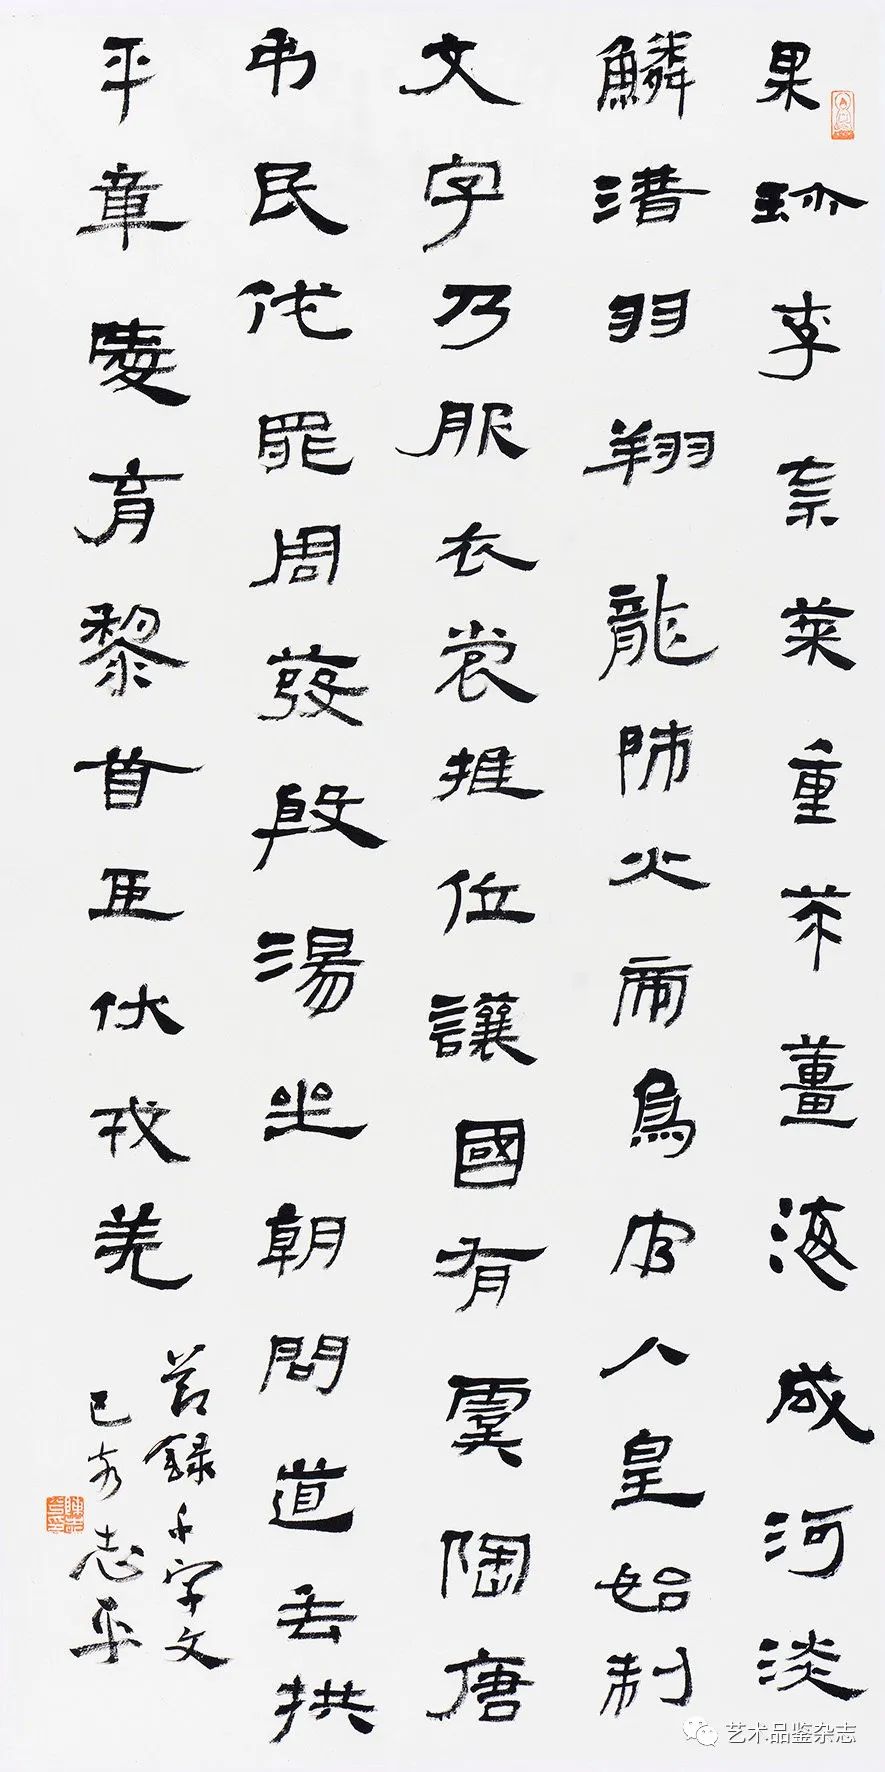 果珎李柰菜重芥薑海咸河淡
鱗潜羽翔龍師火帝鳥官人皇始制
文字乃服衣裳推位讓國有虞陶唐
弔民伐罪周發殷湯坐朝問道垂拱
平章愛育黎首臣伏戎羌
節録千字文
己亥志平
艺术品鉴杂志